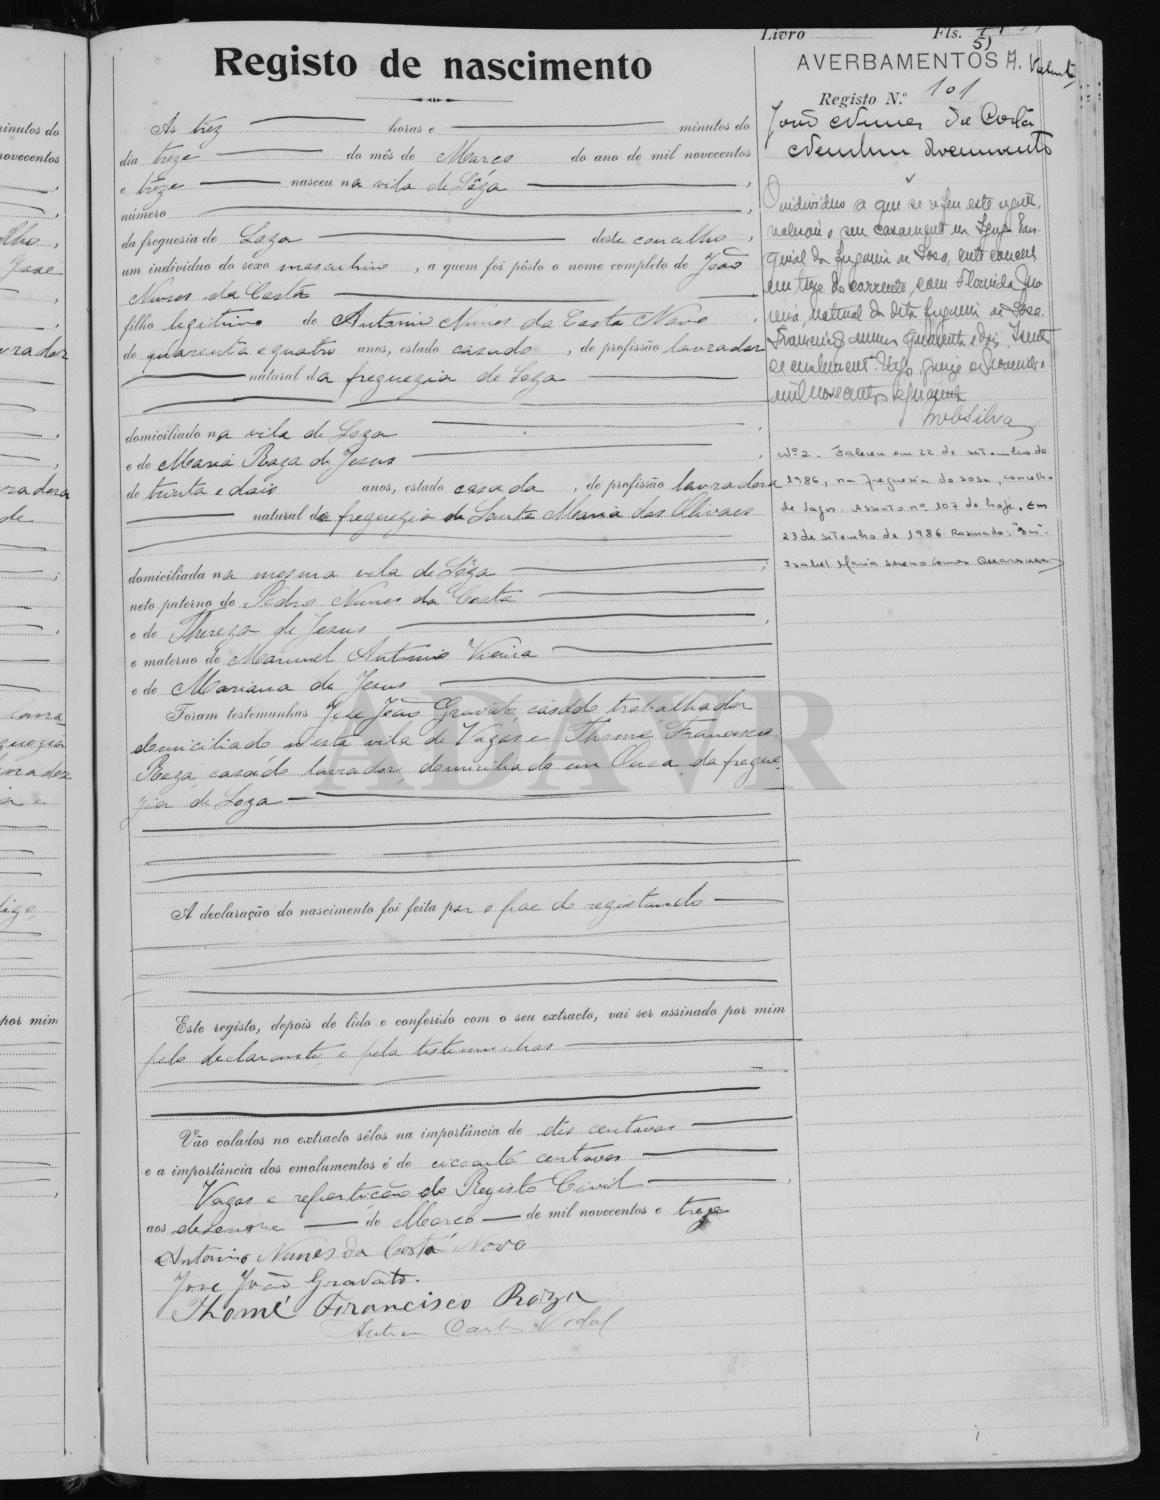 Livro Fls.
51
Registo de nascimento
Ás trêz horas e minutos do
dia treze do mês de Março do ano de mil novecentos
e treze nasceu na vila de Sôza
número
da freguesia de Soza deste concelho,
um individuo do sexo masculino, a quem foi pôsto o nome completo de João
Nunes da Costa
filho legitimo de Antonio Nunes da Costa Novo
de quarenta e quatro anos, estado casado, de profissão lavrador
natural da freguezia de Soza
domiciliado na vila de Soza
e de Maria Roza de Jesus
de trinta e dois anos, estado casada, de profissão lavradora
natural da freguezia de Santa Maria dos Olivaes
domiciliada na mesma vila de Sôza
neto paterno de Pedro Nunes da Costa
e de Thereza de Jesus
e materno de Manuel Antonio Vieira
e de Mariana de Jesus
Foram testemunhas José João Gravato, casado trabalhador
domiciliado n'esta vila de Vagos e Thomé Francisco
Roza, casado lavrador, domiciliado em Ouca, da fregue-
zia de Soza
A declaração do nascimento foi feita por o pae do registando
Este registo, depois de lido e conferido com o seu extracto, vai ser assinado por mim
pelo declarante, e pela testemunhas
Vão colados no extracto sêlos na importância de dés centavos
e a importância dos emolumentos é de cicoenta centavos
Vagos e repartição do Registo Civil
aos dezenove de Março de mil novecentos e treze
Antonio Nunes da Costa Novo
José João Gravato.
Thomé Francisco Roza
AVERBAMENTOS
Registo N.º 101
João Nunes da Costa
O individuo a que se refere este registo,
realizou o seu casamento na Igreja Paro-
quial da freguesia de Sosa, este concelho
em treze do corrente, com
natural da dita freguesia de Sosa.
mil novecentos e quarenta
Nº 2. Faleceu em 22 de setembro de
1986, na freguesia de Sosa, concelho
de Vagos. Assento nº 107 de hoje. Em
23 de setembro de 1986. Rasurado: "Em".
Isabel Maria
ADAVR
minutos do
novecentos
José
lavrador
lavradora
de
por mim